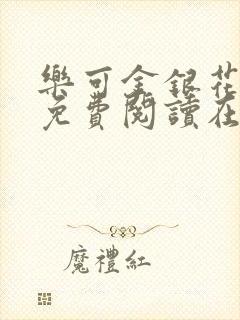 樂可金銀花
免費閱讀在
魔禮紅